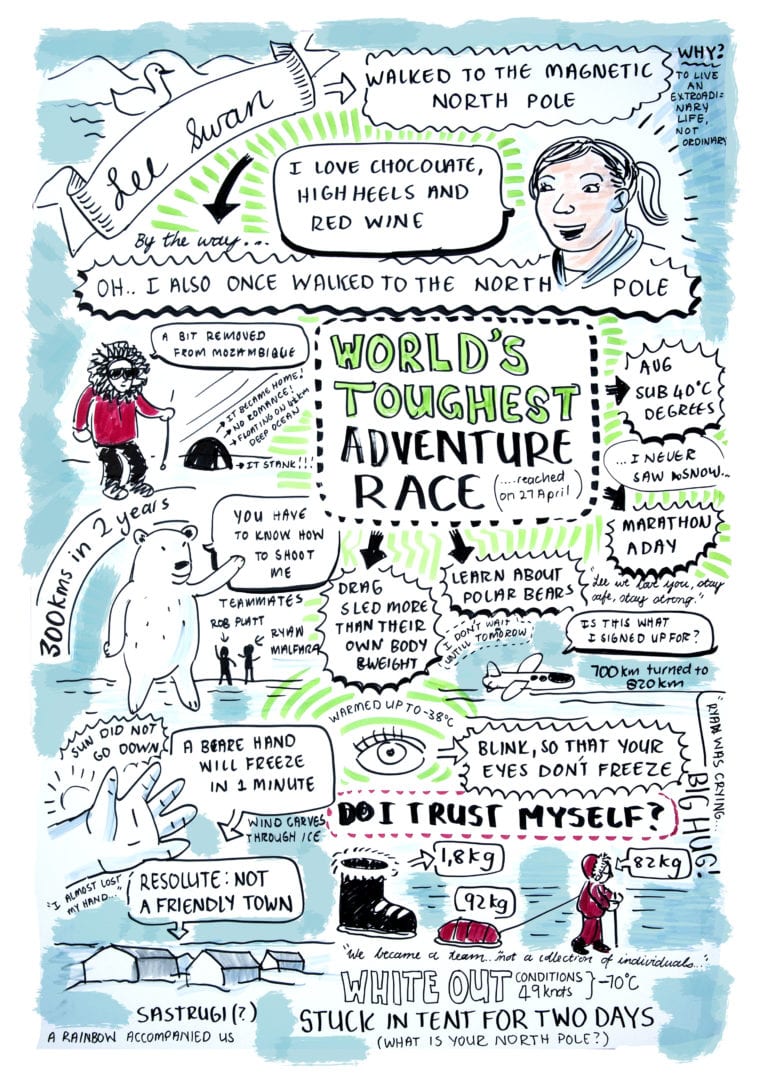 Lee Swan
WALKED TO THE MAGNETIC
NORTH POLE
WHY?
TO LIVE
AN
EXTROADI-
NARY
LIFE,
NOT
ORDINARY
I LOVE CHOCOLATE,
HIGH HEELS AND
RED WINE
By the way...
OH.. I ALSO ONCE WALKED TO THE NORTH POLE
A BIT REMOVED
FROM MOZAMBIQUE
IT BECAME HOME!
NO ROMANCE!
FLOATING ON
DEEP OCEAN
IT STANK!!!
WORLD'S
TOUGHEST
ADVENTURE
RACE
(....reached
on 27 April)
AVG
SUB 40°C
DEGREES
...I NEVER
SAW SNOW...
MARATHON
A DAY
"Lee we love you, stay
safe, stay strong."
300kms in 2 years
YOU HAVE
TO KNOW HOW
TO SHOOT
ME
TEAMMATES
ROB PLATT
RYAN
DRAG
SLED MORE
THAN THEIR
OWN BODY
WEIGHT
LEARN ABOUT
POLAR BEARS
I DON'T WAIT
UNTILL TOMORROW
IS THIS WHAT
I SIGNED UP FOR?
700 km turned to
820 km
WARMED UP TO -38°C
SUN DID NOT
GO DOWN
A BARE HAND
WILL FREEZE
IN 1 MINUTE
WIND CARVES
THROUGH ICE
BLINK, SO THAT YOUR
EYES DON'T FREEZE
"RYAN WAS CRYING...
BIG HUG!
DO I TRUST MYSELF?
"I ALMOST LOST
MY HAND..."
RESOLUTE: NOT
A FRIENDLY TOWN
1,8 kg
92 kg
82 kg
"We became a team.. not a collection of individuals..."
WHITE OUT CONDITIONS } -70°C
49 knots
SASTRUGI (?)
STUCK IN TENT FOR TWO DAYS
A RAINBOW ACCOMPANIED US
(WHAT IS YOUR NORTH POLE?)